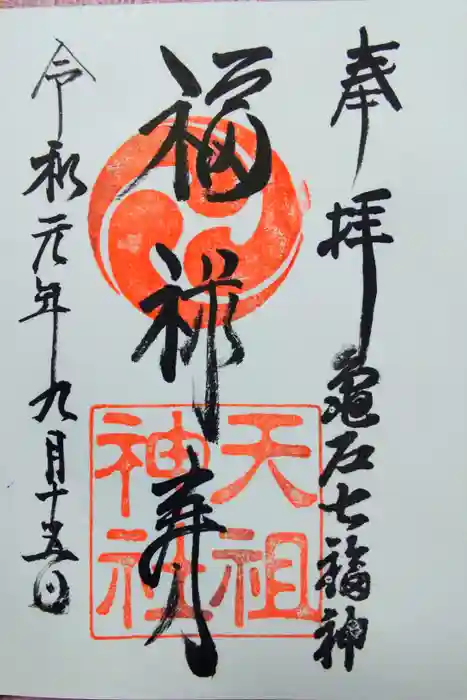 奉拝 亀戸七福神
福禄寿
天祖神社
令和元年九月十五日